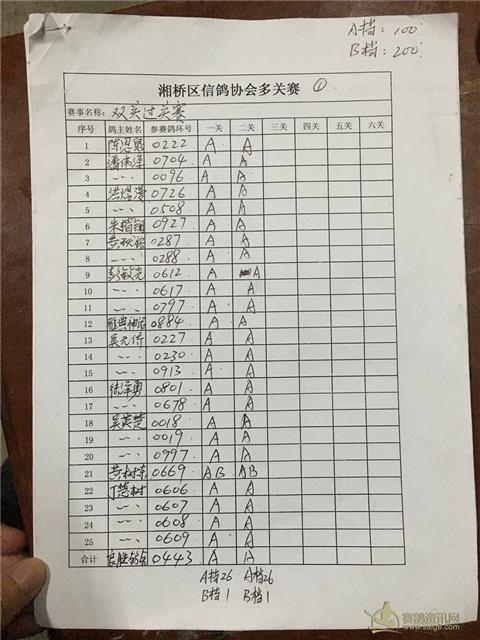 A档：100
B档：200
湘桥区信鸽协会多关赛 ①
赛事名称： 双关过关赛
序号 鸽主姓名 参赛鸽环号 一关 二关 三关 四关 五关 六关
1 陈恩 0222 A A
2 0704 A A
3 〃 0096 A A
4 0726 A A
5 〃 0508 A A
6 朱 0927 A A
7 黄 0287 A A
8 〃 0288 A A
9 0612 A A
10 〃 0617 A A
11 〃 0797 A A
12 0884 A A
13 吴元 0227 A A
14 〃 0230 A A
15 〃 0913 A A
16 勇 0801 A A
17 〃 0678 A A
18 吴英楚 0018 A A
19 〃 0019 A A
20 〃 0997 A A
21 黄树 0669 AB AB
22 丁 树 0606 A A
23 〃 0607 A A
24 〃 0608 A A
25 〃 0609 A A
合计 0443 A A
A档26 A档26
B档1 B档1
赛鸽资讯网
www.saige.com